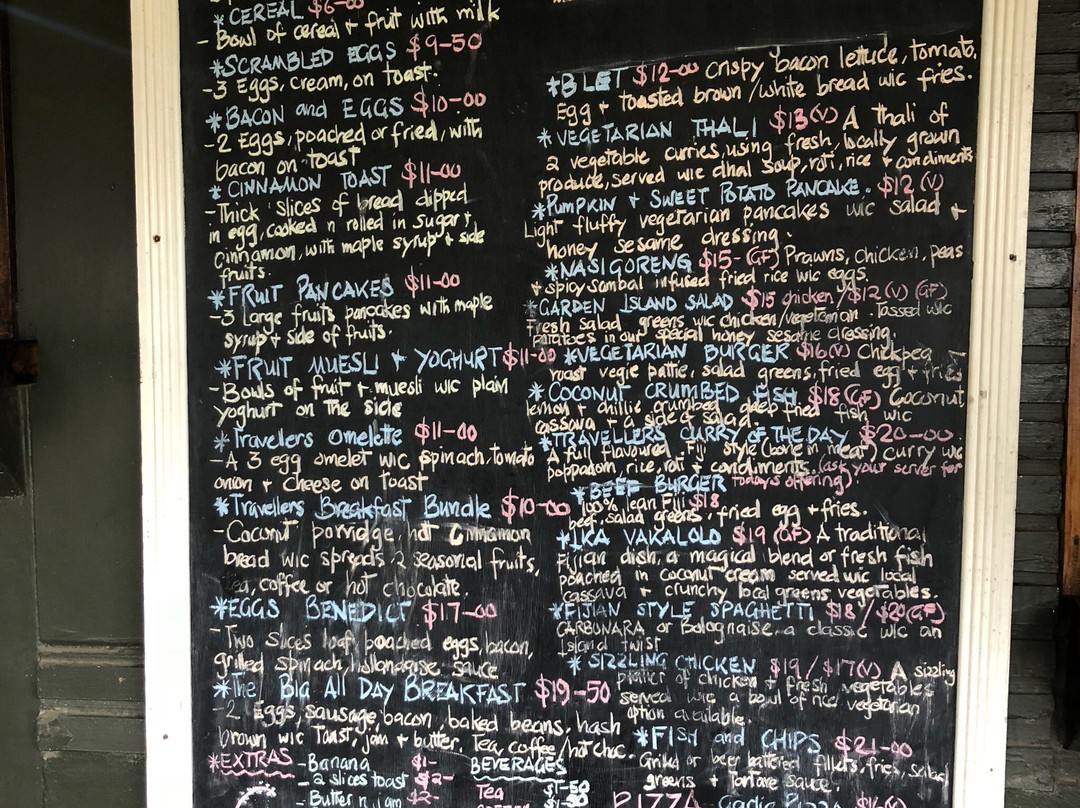 *CEREAL $6-00
- Bowl of cereal + fruit with milk
*SCRAMBLED EGGS $9-50
-3 Eggs, cream, on toast.
*BACON and EGGS $10-00
-2 Eggs, poached or fried, with
bacon on toast
*CINNAMON TOAST $11-00
-Thick slices of bread dipped
in egg, cooked n rolled in sugar +
cinnamon, with maple syrup + side
fruits.
*FRUIT PANCAKES $11-00
-3 Large fruits pancakes with maple
syrup + side of fruits.
*FRUIT MUESLI + YOGHURT $11-00
-Bowls of fruit + muesli wic plain
yoghurt on the side
*Travellers Omelette $11-00
-A 3 egg omelet wic spinach, tomato
onion + cheese on toast
*Travellers Breakfast Bundle $10-00
-Coconut porridge, hot cinnamon
bread wic spreads, 2 seasonal fruits,
tea, coffee or hot chocolate.
*EGGS BENEDICT $17-00
-Two slices loaf, poached eggs, bacon,
grilled spinach, hollandaise sauce
*The Big All DAY BREAKFAST $19-50
-2 Eggs, sausage, bacon, baked beans, hash
brown wic Toast, jam + butter. Tea, coffee/hot choc.
*EXTRAS
-Banana $1-
-2 slices toast $2-
-Butter n jam $2-
BEVERAGES
Tea $1-50
*BLET $12-00 Crispy bacon lettuce, tomato,
Egg + toasted brown/white bread wic fries.
*VEGETARIAN THALI $13(V) A thali of
2 vegetable curries, using fresh, locally grown
produce, served wic dhal soup, roti, rice + condiments
*PUMPKIN + SWEET POTATO PANCAKE. $12(V)
Light fluffy vegetarian pancakes wic salad +
honey sesame dressing.
*NASI GORENG $15-(GF) Prawns, chicken, peas
+ spicy sambal infused fried rice wic eggs.
*GARDEN ISLAND SALAD $15 chicken/$12(V) (GF)
Fresh salad greens wic chicken/vegetarian. Tossed wic
potatoes in our special honey sesame dressing.
*VEGETARIAN BURGER $16(V) Chickpea,
roast vegie pattie, salad greens, fried egg + fries
*COCONUT CRUMBED FISH $18(GF) Coconut,
lemon + chillie crumbed deep fried fish wic
cassava + a side of salad.
*TRAVELLERS CURRY OF THE DAY $20-00.
A full flavoured Fiji style (bone in meat) curry wic
poppadom, rice, roti + condiments. (ask your server for
todays offering)
*BEEF BURGER $18
100% lean Fiji
beef, salad greens, fried egg + fries.
*IKA VAKALOLO $19(GF) A traditional
Fijian dish, a magical blend or fresh fish
poached in coconut cream served wic local
cassava + crunchy local greens vegetables.
*FIJIAN STYLE SPAGHETTI $18/$20(GF)
CARBONARA or Bolognaise, a classic wic an
Island twist
*SIZZLING CHICKEN $19/$17(V) A sizzling
platter of chicken + fresh vegetables
served wic a bowl of rice vegetarian
option available.
*FISH and CHIPS $21-00
Grilled or beer battered fillets, fries, salad
greens + Tartare sauce.
PIZZA